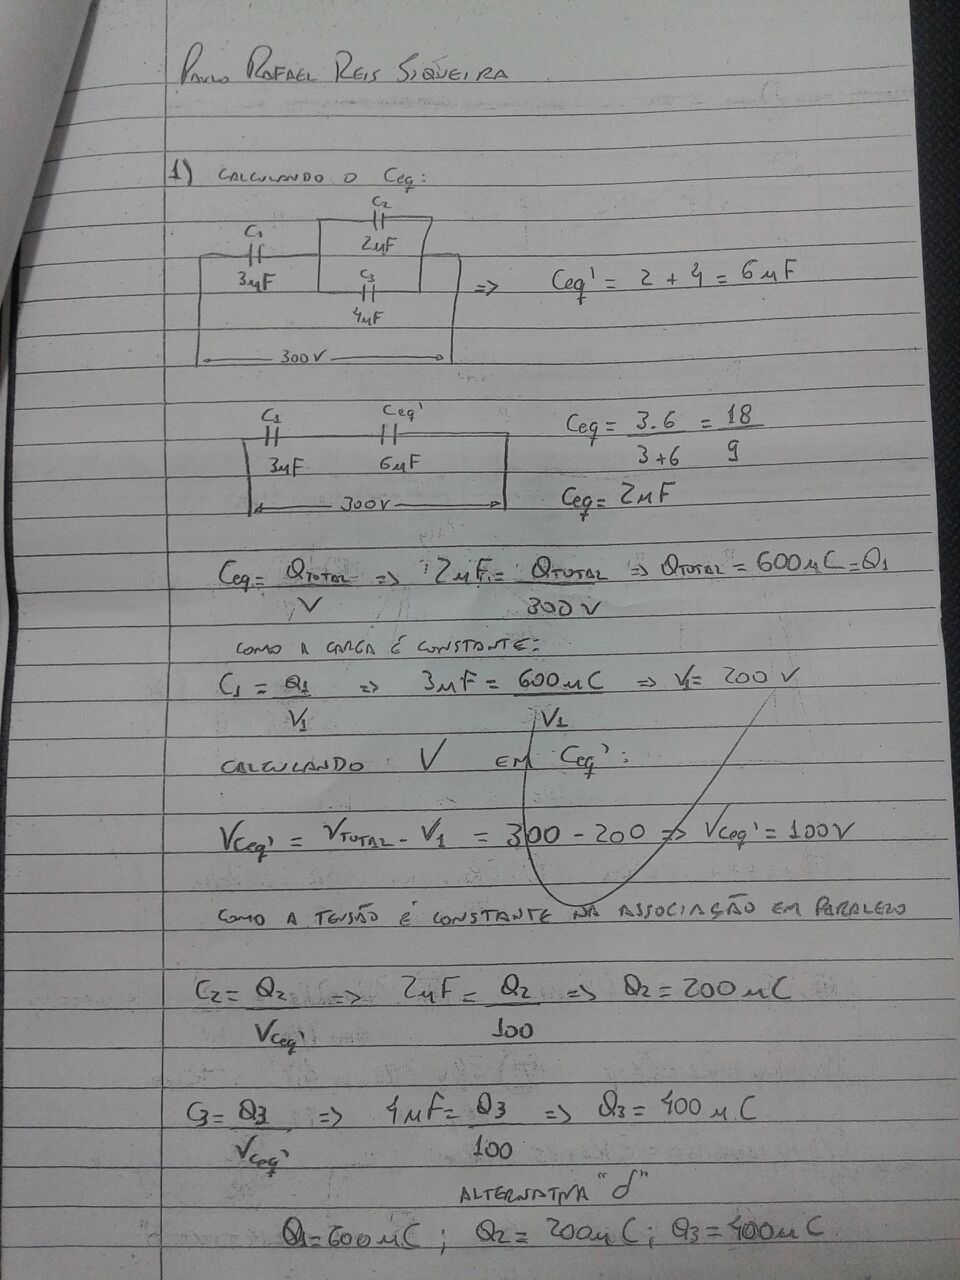 PAULO RAFAEL REIS SIQUEIRA
1) CALCULANDO O Ceq:
C1
3μF
C2
2μF
C3
4μF
300V
=> Ceq' = 2 + 4 = 6μF
C1
3μF
Ceq'
6μF
300V
Ceq = 3.6/3+6 = 18/9
Ceq = 2μF
Ceq = QTOTAL/V => 2μF = QTOTAL/300V => QTOTAL = 600μC = Q1
COMO A CARGA É CONSTANTE:
C1 = Q1/V1 => 3μF = 600μC/V1 => V1 = 200V
CALCULANDO V EM Ceq':
VCeq' = VTOTAL - V1 = 300 - 200 => VCeq' = 100V
COMO A TENSÃO É CONSTANTE NA ASSOCIAÇÃO EM PARALELO
C2 = Q2/VCeq' => 2μF = Q2/100 => Q2 = 200μC
C3 = Q3/VCeq' => 4μF = Q3/100 => Q3 = 400μC
ALTERNATIVA "d"
Q1 = 600μC ; Q2 = 200μC ; Q3 = 400μC